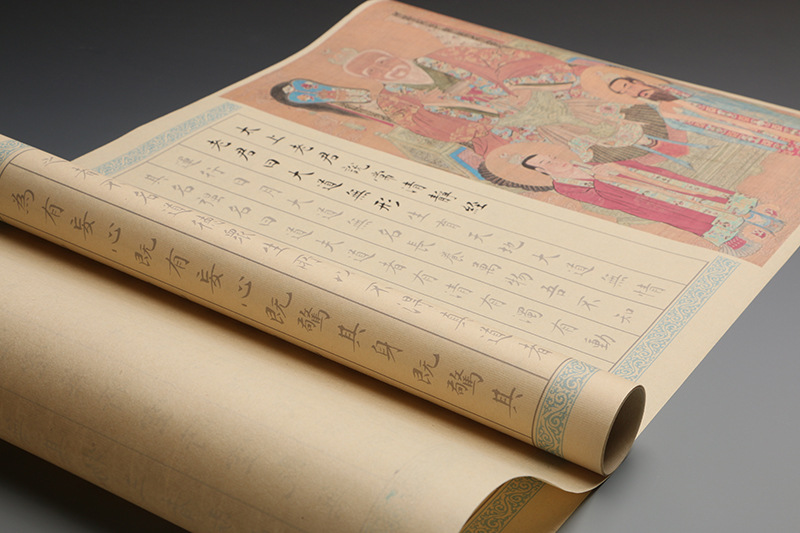 太上老君說常清靜經
老君曰大道無形生育天地大道無情
運行日月大道無名長養萬物吾不知
其名強名曰道夫道者有清有濁有動
名道德眾生所以不得真道者
為有妄心既有妄心既驚其身既驚其